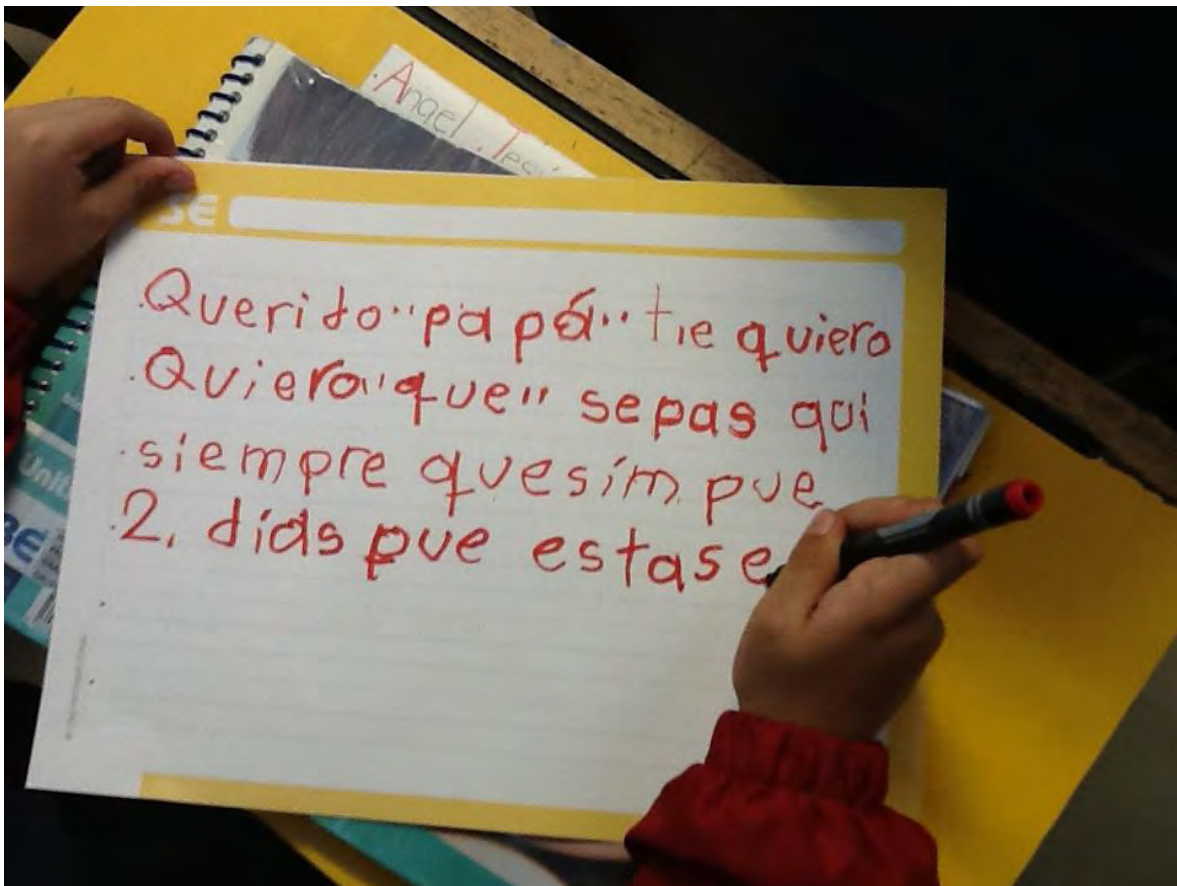 Angel. Jesú
SE
.Querito "papá" tie quiero
.Quiero "que" sepas qui
.siempre quesím pue
.2. días pue estase
Unit
BE